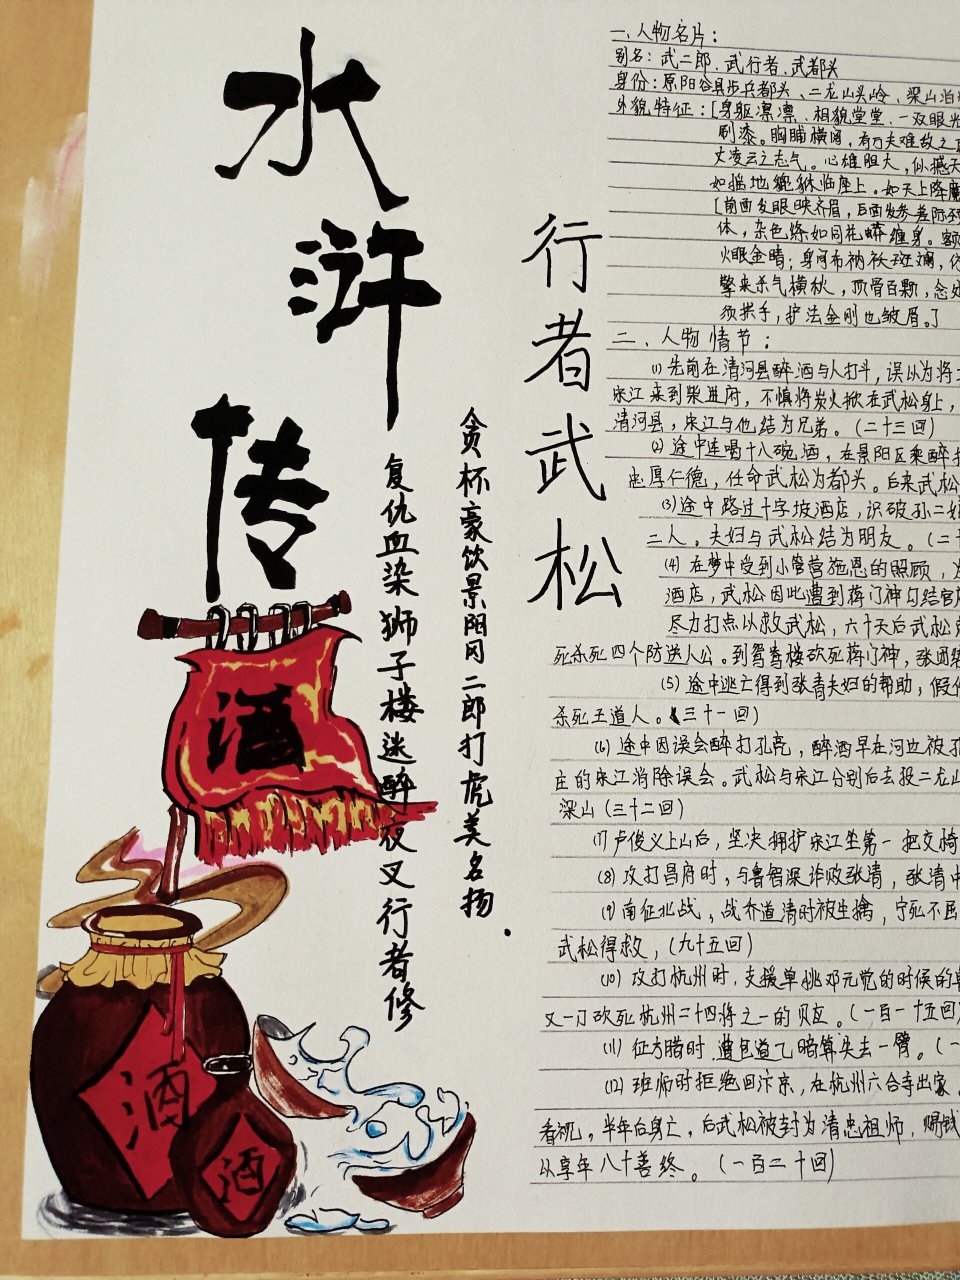 水浒传
贪杯豪饮景阳冈二郎打虎美名扬
复仇血染狮子楼迷醉夜叉行者修
酒
酒
酒
行者武松
一、人物名片：
别名：武二郎、武行者、武都头
身份：原阳谷县步兵都头、二龙山头岭、梁山泊
外貌特征：[身躯凛凛、相貌堂堂、一双眼光
刷漆。胸脯横阔，有万夫难敌之
丈凌云之志气。心雄胆大，似撼天
如摇地貔貅临座上。如天上降魔
[前面发眼映齐眉，后面发参差际颈
体，杂色绦如同花蟒缠身。额
火眼金睛；身间布衲袄斑斓，仿
擎来杀气横秋，顶骨百颗，念处
须拱手，护法金刚也皱眉。]
二、人物情节：
(1)先前在清河县醉酒与人打斗，误以为将
宋江来到柴进府，不慎将炭火掀在武松身上，
清河县，宋江与他结为兄弟。(二十三回)
(2)途中连喝十八碗酒，在景阳区乘醉
忠厚仁德，任命武松为都头。后来武松
(3)途中路过十字坡酒店，识破孙二娘
二人。夫妇与武松结为朋友。(二十
(4)在梦中受到小管营施恩的照顾，
酒店，武松因此遭到蒋门神勾结官
尽力打点以救武松，六十天后武松
死杀死四个防送人公。到鸳鸯楼砍死蒋门神，张团
(5)途中逃亡得到张青夫妇的帮助，假
杀死王道人。(三十一回)
(6)途中因误会醉打孔亮，醉酒早在河边被孔
庄的宋江消除误会。武松与宋江分别后去投二龙山
梁山(三十二回)
(7)卢俊义上山后，坚决拥护宋江坐第一把交椅
(8)攻打昌府时，与鲁智深诈败张清，张清中
(9)南征北战，战乔道清时被生擒，宁死不屈
武松得救，(九十五回)
(10)攻打杭州时，支援单挑邓元觉的时候的鲁
又一刀砍死杭州二十四将之一的贝应。(一百一十五回)
(11)征方腊时，遭包道乙暗算失去一臂。(一
(12)班师时拒绝回汴京，在杭州六合寺出家。
看视。半年后身亡，后武松被封为清忠祖师，赐钱
以享年八十善终。(一百二十回)